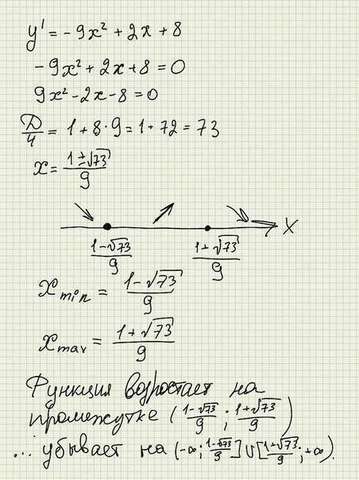 y' = -9x² + 2x + 8
-9x² + 2x + 8 = 0
9x² - 2x - 8 = 0
D/4 = 1 + 8·9 = 1 + 72 = 73
x = (1±√73)/9
X
(1-√73)/9 (1+√73)/9
x min = (1-√73)/9
x max = (1+√73)/9
Функция возрастает на
промежутке ((1-√73)/9; (1+√73)/9)
... убывает на (-∞; (1-√73)/9] ∪ [(1+√73)/9; +∞).